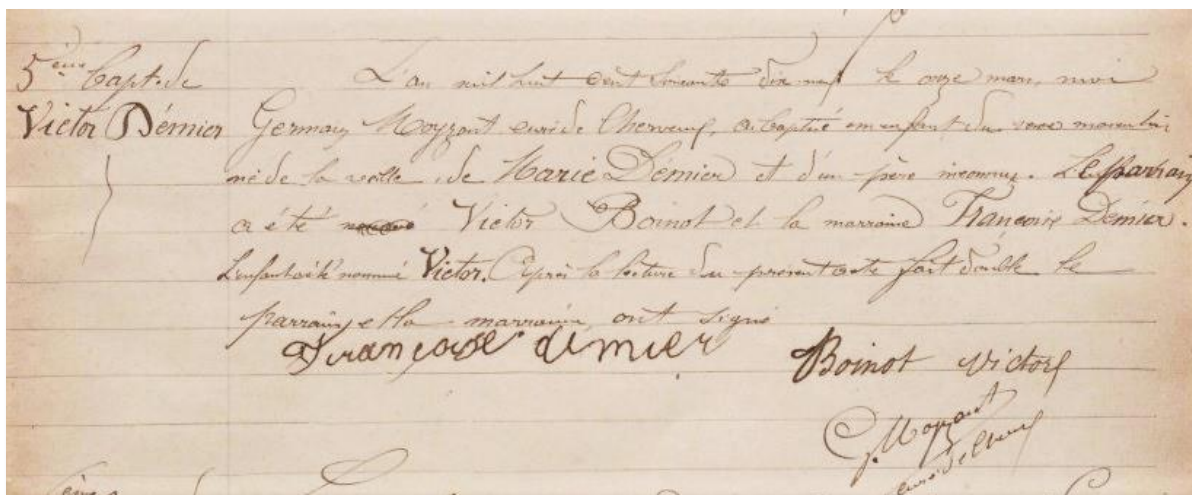 5ème Bapt. de
Victor Démier
L'an mil huit cent soixante dix neuf le onze mars, moi
Germain Moyzant curé de Cherveux, ai baptisé un enfant du sexe masculin
né de la veille, de Marie Démier et d'un père inconnu. Le parrain
a été Victor Boinot et la marraine Françoise Démier.
L'enfant a été nommé Victor. Après la lecture du présent acte fait double le
parrain et la marraine ont signé
Françoise démier Boinot Victor
G. Moyzant
curé de Cherv